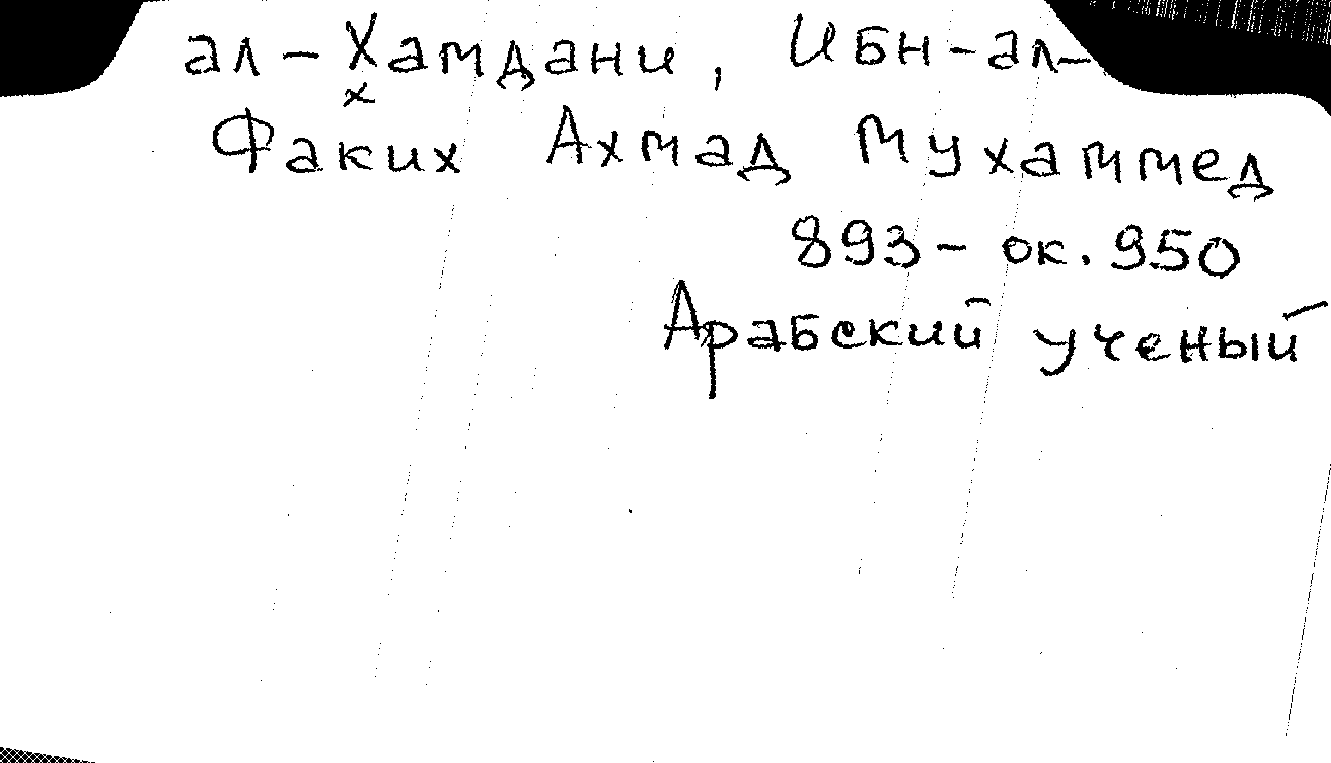 ал-Хамдани, Ибн-ал-
х
Факих Ахмад Мухаммед
893- ок. 950
Арабский ученый